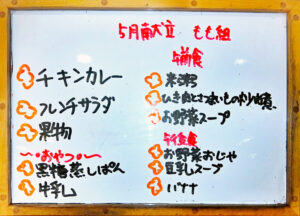 5月献立 もも組
チキンカレー
フレンチサラダ
果物
～・おやつ・～
黒糖蒸しぱん
牛乳
5期食
米粥
ひき肉とさつまいもの炒り煮
お野菜スープ
お野菜おじや
豆乳スープ
バナナ